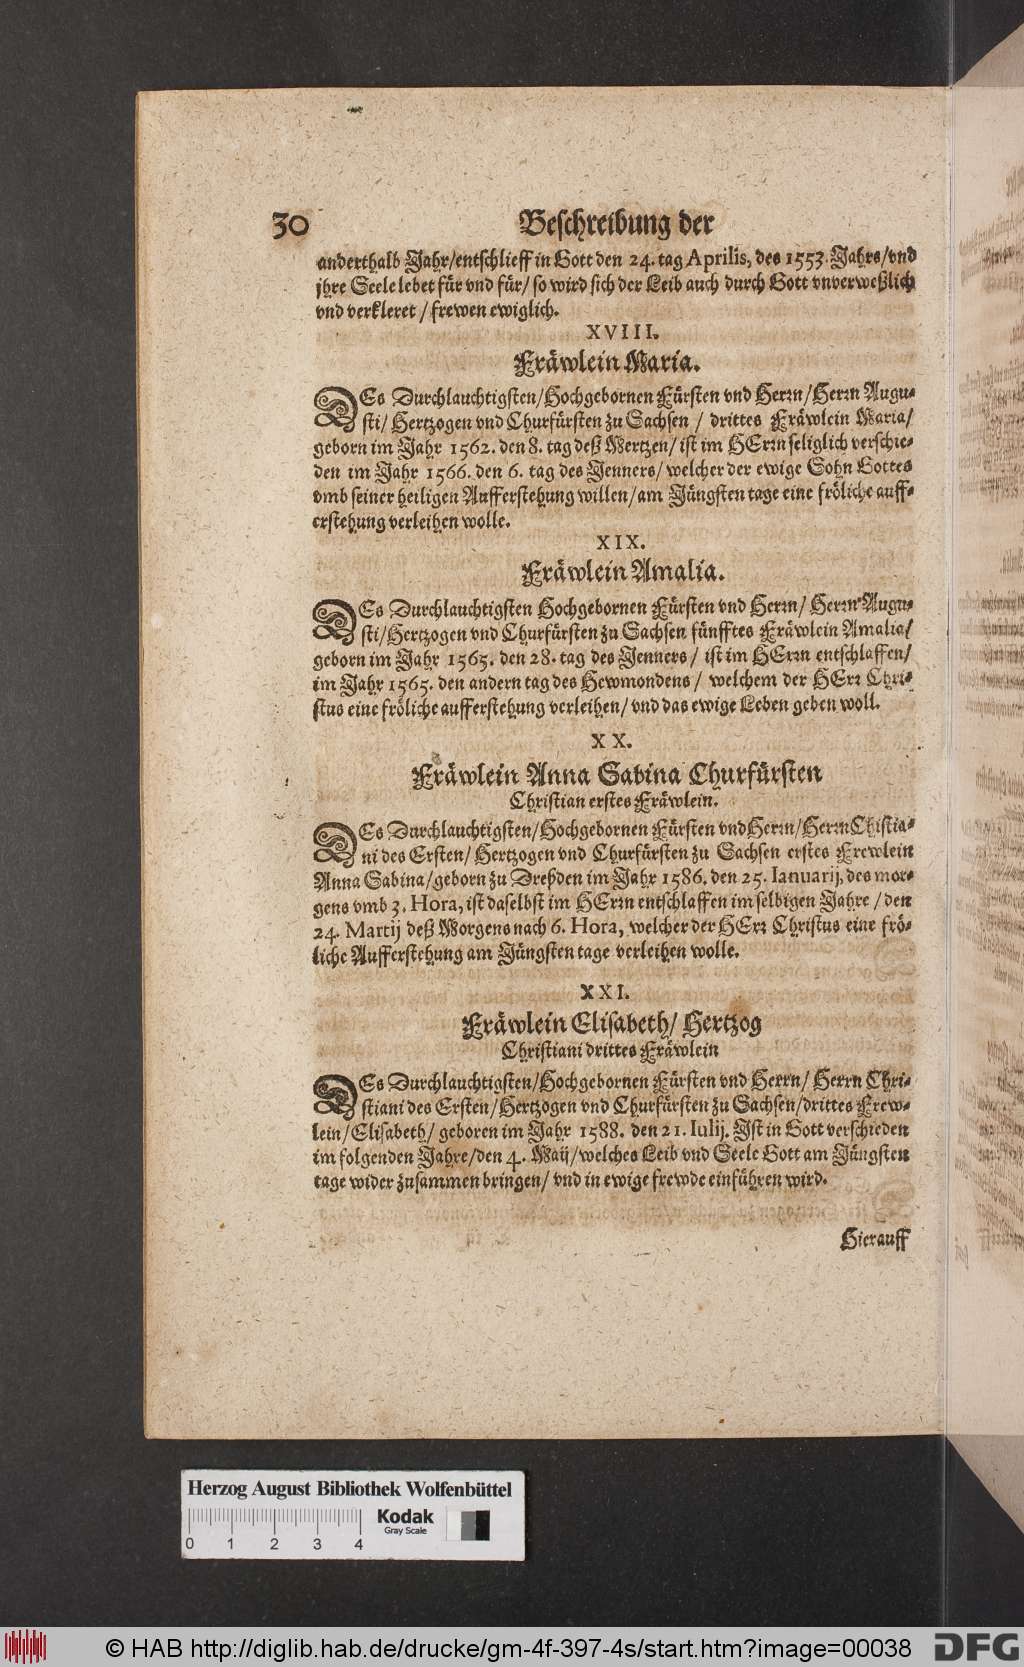 30 Beschreibung der
anderthalb Jahr/entschlieff in Gott den 24. tag Aprilis, des 1553. Jahrs/vnd
jhre Seele lebet für vnd für/ so wird sich der Leib auch durch Gott vnverweßlich
vnd verkleret / frewen ewiglich.
XVIII.
Fräwlein Maria.
DEs Durchlauchtigsten/Hochgebornen Fürsten vnd Herrn/Herrn Augu-
sti/ Hertzogen vnd Churfürsten zu Sachsen / drittes Fräwlein Maria/
geborn im Jahr 1562. den 8. tag deß Mertzen/ ist im HErrn seliglich verschie-
den im Jahr 1566. den 6. tag des Jenners/ welcher der ewige Sohn Gottes
vmb seiner heiligen Aufferstehung willen/am Jüngsten tage eine fröliche auff-
erstehung verleihen wolle.
XIX.
Fräwlein Amalia.
DEs Durchlauchtigsten Hochgebornen Fürsten vnd Herrn/ Herrn Augu-
sti/Hertzogen vnd Churfürsten zu Sachsen fünfftes Fräwlein Amalia/
geborn im Jahr 1565. den 28. tag des Jenners/ ist im HErrn entschlaffen/
im Jahr 1565. den andern tag des Hewmondens/ welchem der HErr Chri-
stus eine fröliche aufferstehung verleihen/ vnd das ewige Leben geben woll.
XX.
Fräwlein Anna Sabina Churfürsten
Christian erstes Fräwlein.
DEs Durchlauchtigsten/Hochgebornen Fürsten vnd Herrn/Herrn Chistia-
ni des Ersten/ Hertzogen vnd Churfürsten zu Sachsen erstes Frewlein
Anna Sabina/geborn zu Dreßden im Jahr 1586. den 25. Ianuarij, des mor-
gens vmb 3. Hora, ist daselbst im HErrn entschlaffen im selbigen Jahre / den
24. Martij deß Morgens nach 6. Hora, welcher der HErr Christus eine frö-
liche Aufferstehung am Jüngsten tage verleihen wolle.
XXI.
Fräwlein Elisabeth/ Hertzog
Christiani drittes Fräwlein
DEs Durchlauchtigsten/Hochgebornen Fürsten vnd Herrn/ Herrn Chri-
stiani des Ersten/Hertzogen vnd Churfürsten zu Sachsen/drittes Frew-
lein/Elisabeth/ geboren im Jahr 1588. den 21. Iulij. Ist in Gott verschieden
im folgenden Jahre/den 4. Maij/welches Leib vnd Seele Gott am Jüngsten
tage wider zusammen bringen/ vnd in ewige frewde einführen wird.
Hierauff
Herzog August Bibliothek Wolfenbüttel
Kodak
Gray Scale
0 1 2 3 4
© HAB http://diglib.hab.de/drucke/gm-4f-397-4s/start.htm?image=00038
DFG